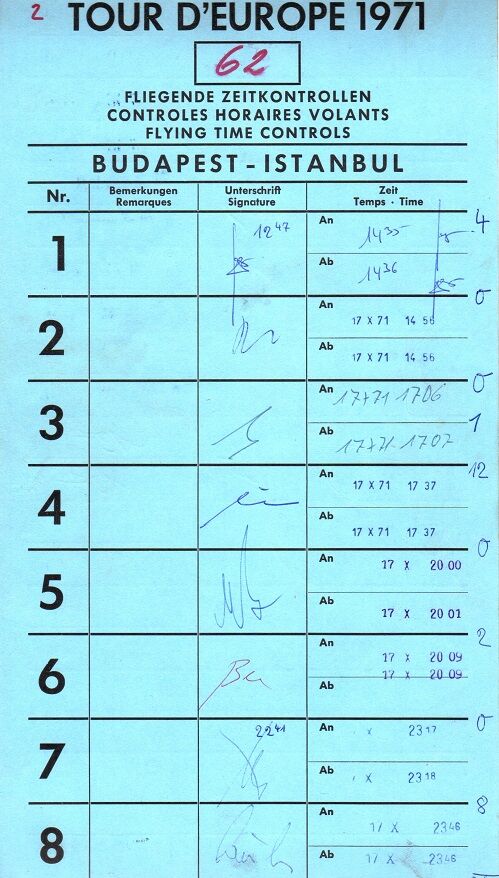 2
TOUR D'EUROPE 1971
62
FLIEGENDE ZEITKONTROLLEN
CONTROLES HORAIRES VOLANTS
FLYING TIME CONTROLS
BUDAPEST - ISTANBUL
Nr. Bemerkungen Unterschrift Zeit
Remarques Signature Temps · Time
4
1 12 47 An 1435
Ab 1436
0
2 An 17 X 71 14 56
Ab 17 X 71 14 56
0
3 An 17 X 71 1706
1
Ab 17 X 71 1707
12
4 An 17 X 71 17 37
Ab 17 X 71 17 37
0
5 An 17 X 20 00
Ab 17 X 20 01
2
6 An 17 X 20 09
17 X 20 09
Ab
0
7 22 41 An X 23 17
Ab X 23 18
8
8 An 17 X 23 46
Ab 17 X 23 46